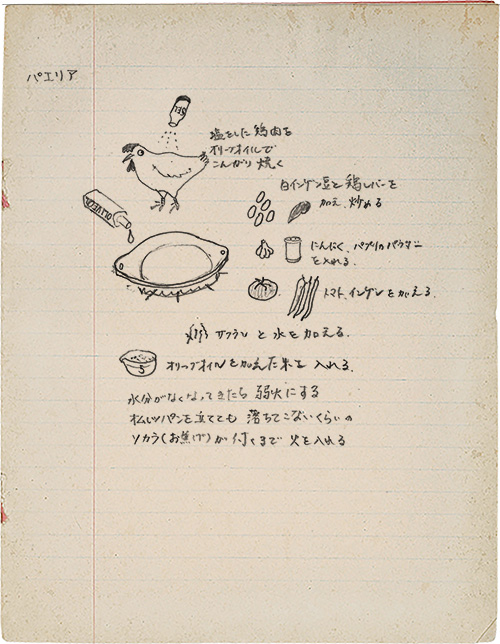 パエリア
SEL
塩をした鶏肉を
オリーブオイルで
こんがり焼く
OLIVEOIL
白インゲン豆と鶏レバーを
加え、炒める
にんにく、パプリカパウダー
を入れる.
トマト,インゲンを加える.
サフランと水を加える.
オリーブオイルを加えた米を入れる.
水分がなくなってきたら弱火にする
パンを立てても落ちてこないくらいの
ソカラ(お焦げ)が付くまで火を入れる